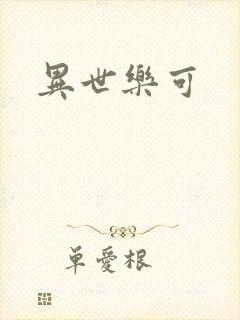 異世樂可
單愛根